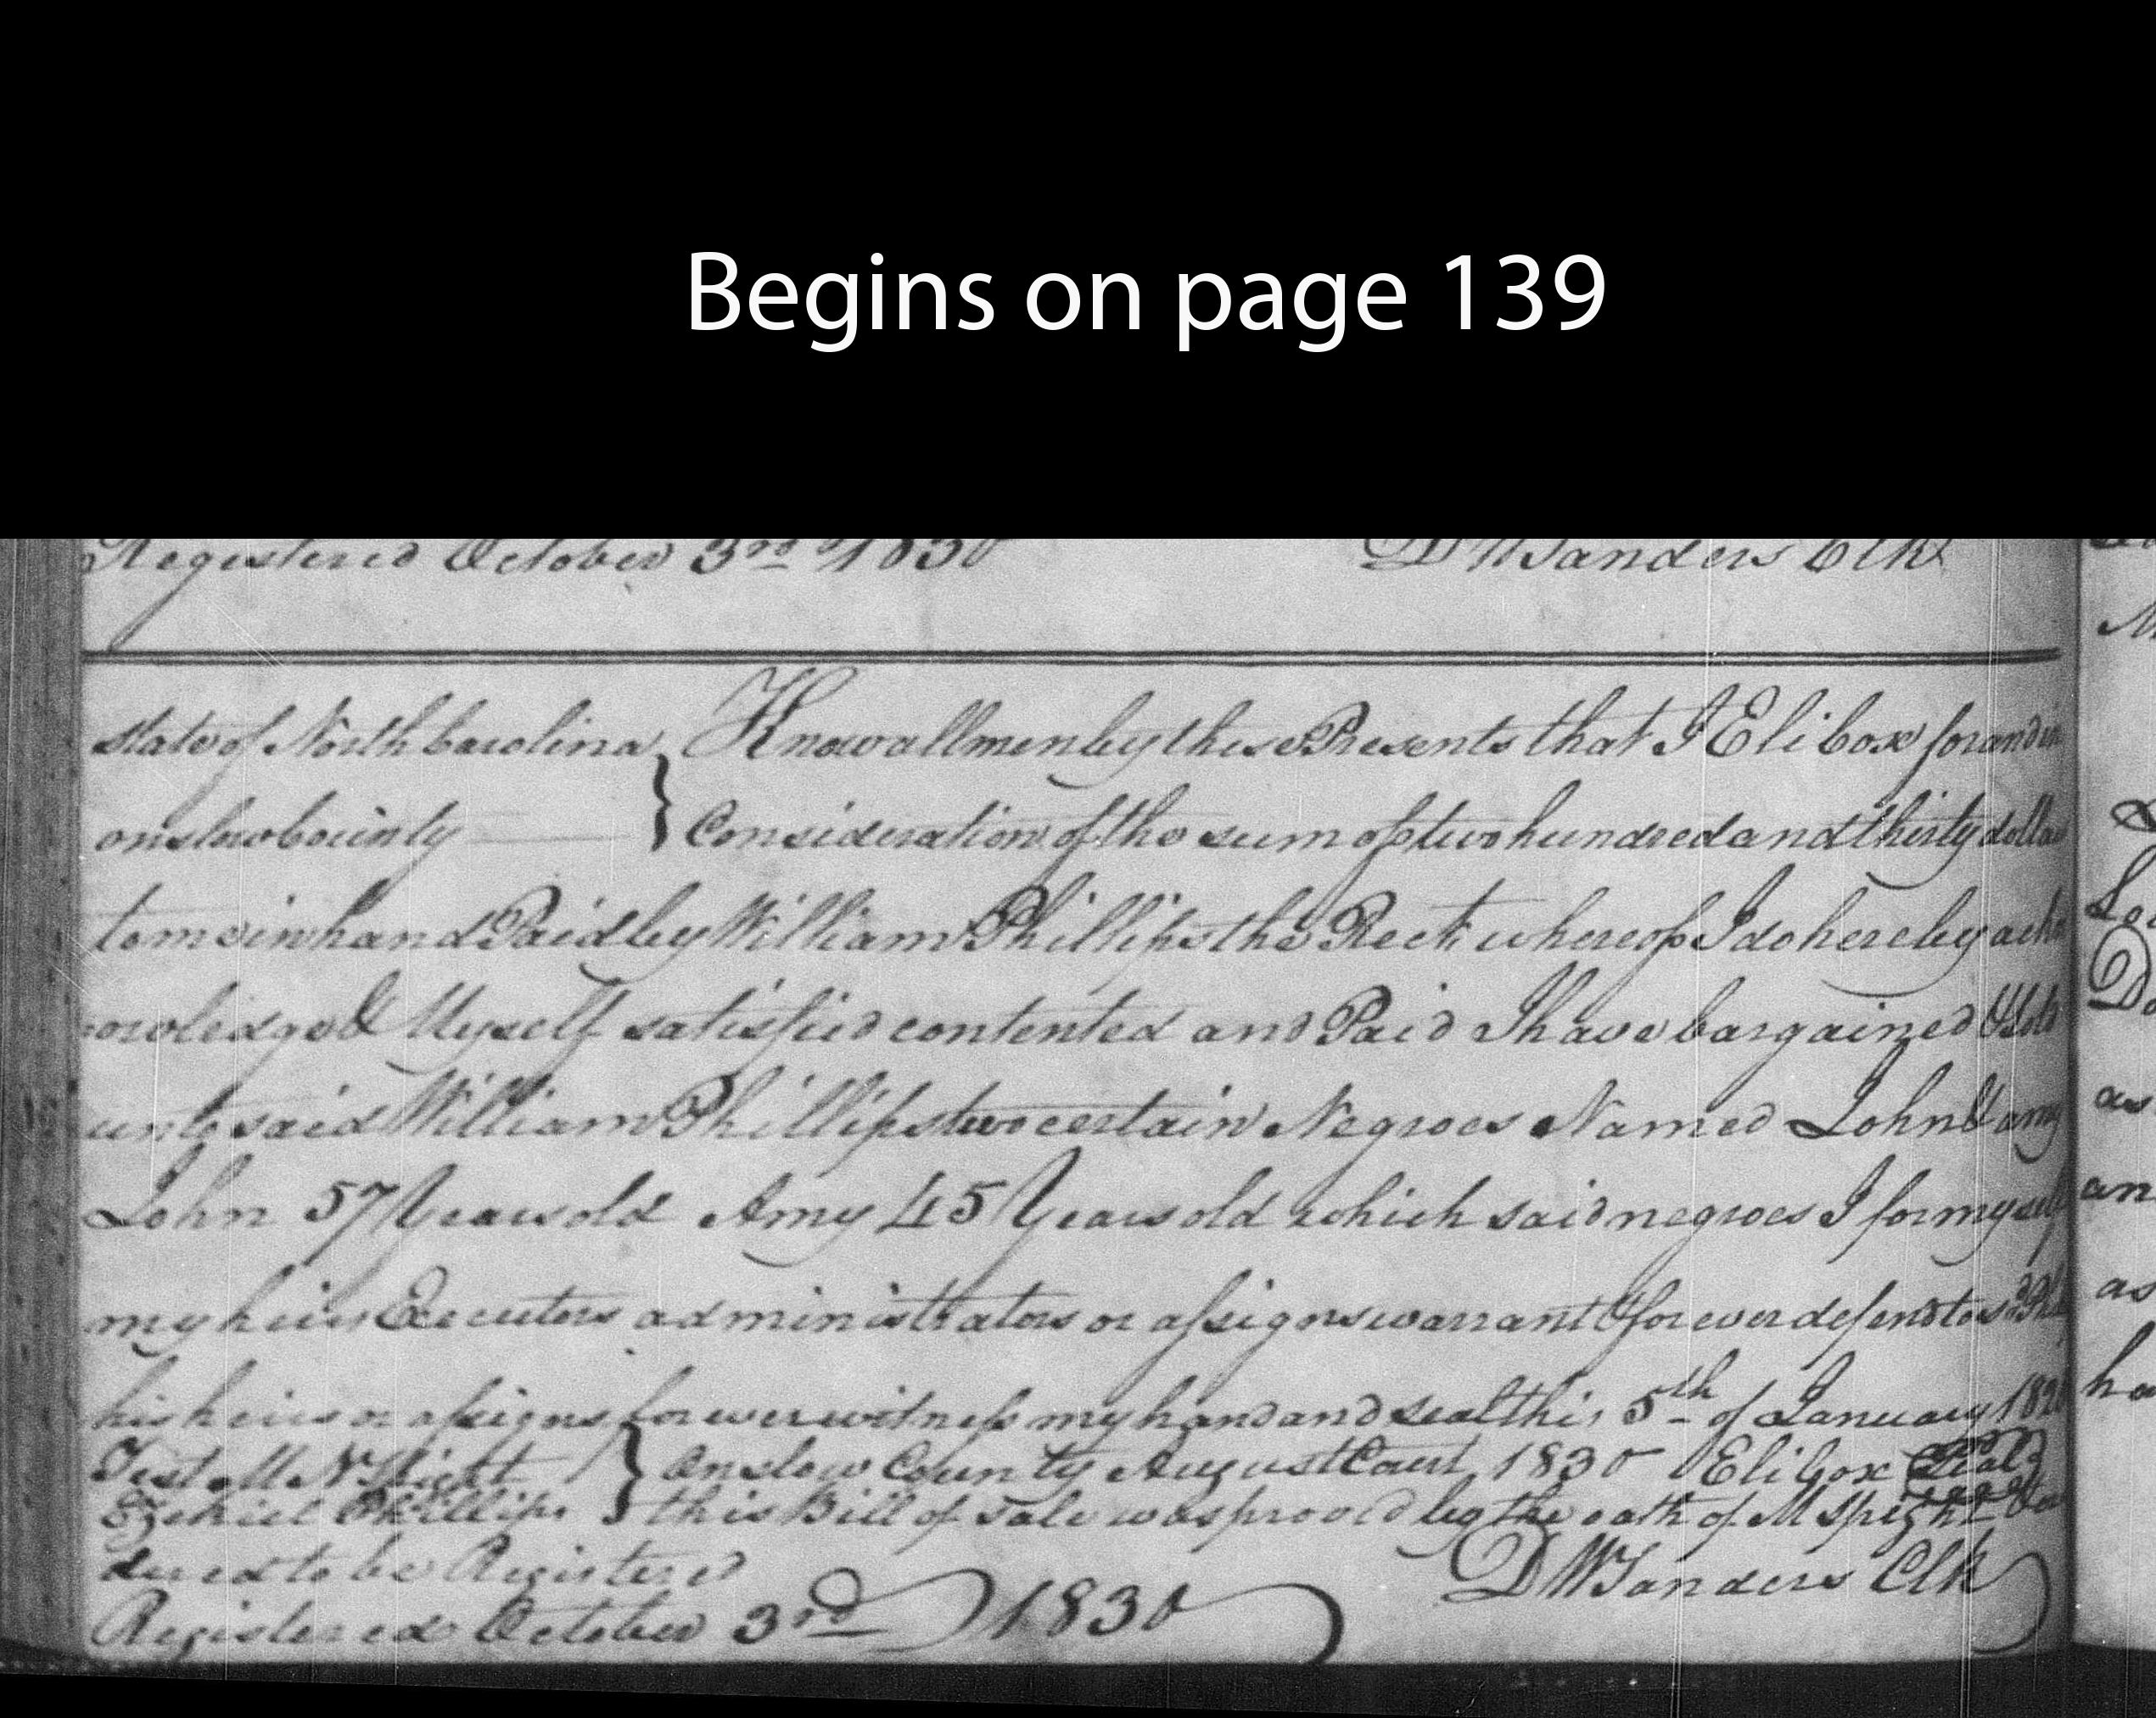 Begins on page 139
Registered October 3rd 1830 D W Sanders Clk
State of North Carolina } Know all men by these Presents that I Eli Cox for and in
onslow County } Consideration of the sum of two hundred and thirty dollars
to me in hand Paid by William Phillips the Rect whereof I do hereby ack
nowledge & Myself satisfied contented and Paid I have bargained & Sold
unto said William Phillips two certain Negroes Named John & amy
John 57 Years old Amy 45 Years old which said negroes I for myself
my heirs Executors administrators or assigns warrant & forever defend to sd
his heirs or assigns forever witness my hand and seal this 5th of January
Test M Onslow County August Court 1830 Eli Cox Seal
Ezekiel Phillips } this Bill of Sale was proovd by the oath of M Spight & or
dered to be Registered D W Sanders Clk
Registered October 3rd 1830